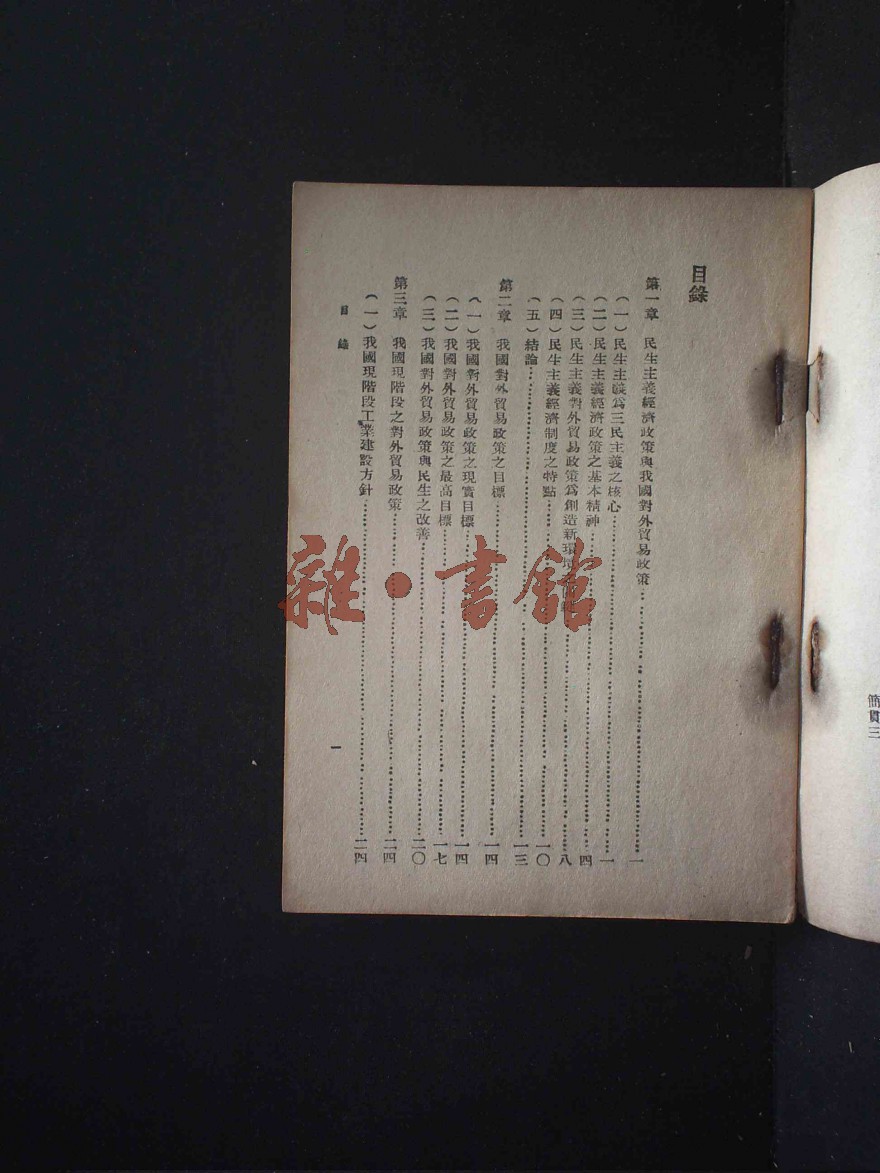 目錄
第一章　民生主義經濟政策與我國對外貿易政策……一
（一）民生主義為三民主義之核心……一
（二）民生主義經濟政策之基本精神……四
（三）民生主義對外貿易政策為創造新環境之……八
（四）民生主義經濟制度之特點……一〇
（五）結論……一三
第二章　我國對外貿易政策之目標……一四
（一）我國對外貿易政策之現實目標……一四
（二）我國對外貿易政策之最高目標……一七
（三）我國對外貿易政策與民生之改善……二〇
第三章　我國現階段之對外貿易政策……二四
（一）我國現階段工業建設方針……二四
目錄
一
簡貫三
雜·書館